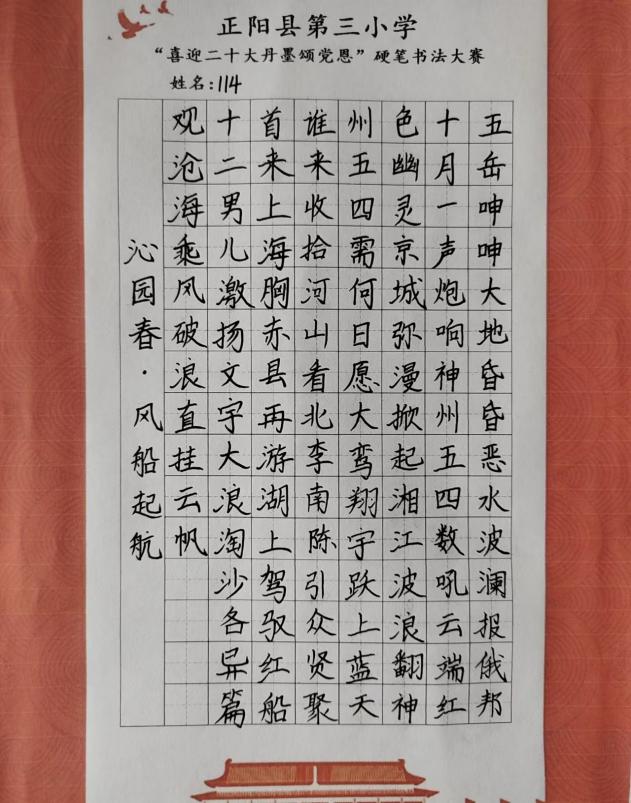 正阳县第三小学
“喜迎二十大丹墨颂党恩”硬笔书法大赛
姓名:114
五岳呻呻大地昏昏恶水波澜报俄邦
十月一声炮响神州五四数吼云端红
色幽灵京城弥漫掀起湘江波浪翻神
州五四需何日愿大鸾翔宇跃上蓝天
谁来收拾河山看北李南陈引众贤聚
首来上海胸赤县再游湖上驾驭红船
十二男儿激扬文字大浪淘沙各异篇
观沧海乘风破浪直挂云帆
沁园春·风船起航